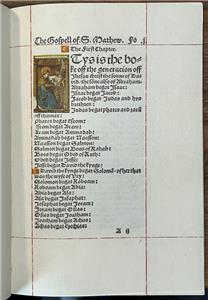 The Gospell of .S. Mathew. Fo .j.
The First Chapter.
Thys is the bo-
ke off the generacion off
Jesus christ the sonne of Da-
vid, the sone also of Abraham.
Abraham begat Isaac:
Isaac begat Jacob:
Jacob begat Judas and hys
brethren:
Judas begat phares and zarā
off thamar:
phares begat Esrom:
Esrom begat Aram:
Aram begat Aminadab:
Aminadab begat Naasson:
Naasson begat Salmon:
Salmon begat Boos of Rahab:
Boos begat Obed of Ruth:
Obed begat Jesse:
Jesse begat David the kynge:
David the kynge begat Solomō, of her that
was the wyfe of Vry:
Solomon begat Roboam:
Roboam begat Abia:
Abia begat Asa:
Asa begat Josaphat:
Josaphat begat Joram:
Joram begat Osias:
Osias begat Joatham:
Joatham begat Achas:
Achas begat Ezechias:
A ij